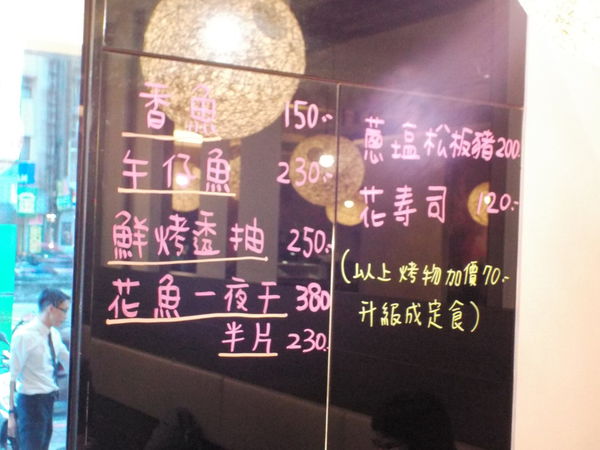 香魚 150.-
午仔魚 230.-
鮮烤透抽 250.-
花魚一夜干 380
半片 230.
蔥塩松板豬 200.
花寿司 120.-
(以上烤物加價70.-
升級成定食)